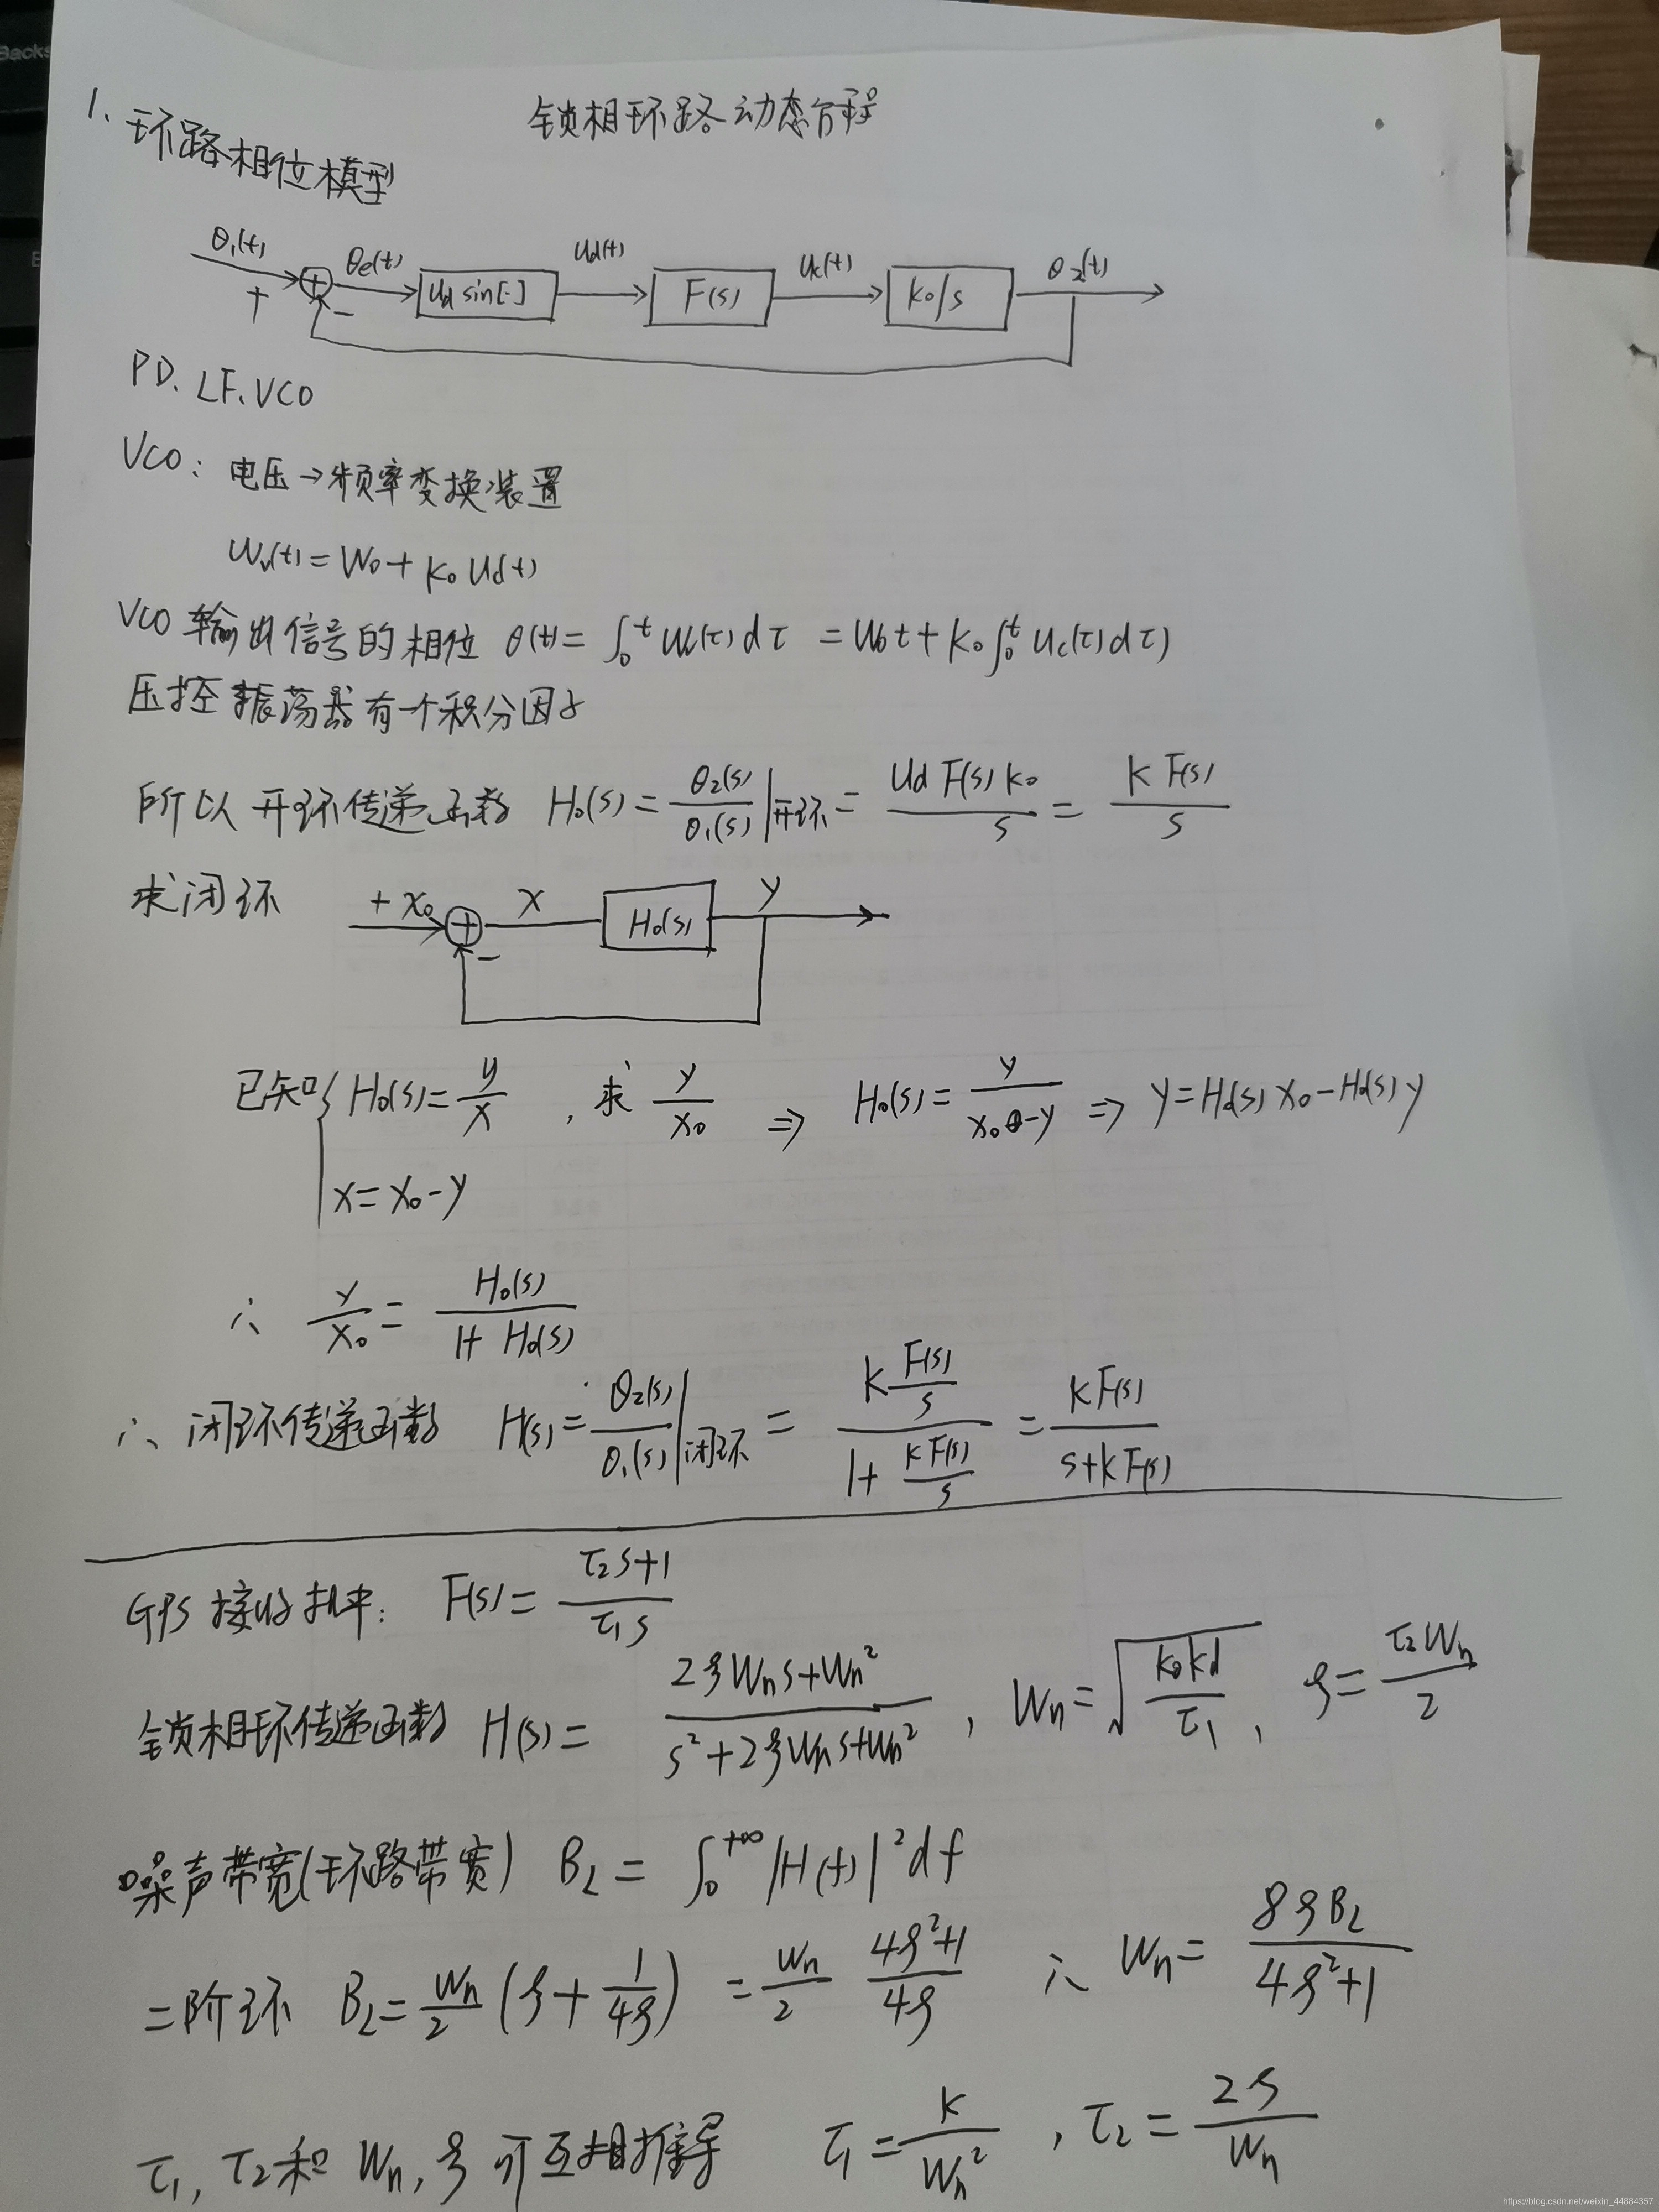 Backs
锁相环路动态方程
1. 环路相位模型
θ₁(t) + − θe(t) Ud sin[·] ud(t) F(s) uc(t) k₀/s θ₂(t)
PD. LF. VCO
VCO: 电压→频率变换装置
Wv(t) = W₀ + k₀ Ud(t)
VCO 输出信号的相位 θ(t) = ∫₀ᵗ Wv(τ)dτ = W₀t + k₀∫₀ᵗ uc(τ)dτ)
压控振荡器有一个积分因子
所以开环传递函数 H₀(s) = θ₂(s)/θ₁(s)|开环 = Ud F(s) k₀ / s = k F(s) / s
求闭环 + x₀ − x H₀(s) y
已知{ H₀(s) = y/x , 求 y/x₀ ⇒ H₀(s) = y/(x₀-y) ⇒ y = H₀(s) x₀ - H₀(s) y
x = x₀ - y
∴ y/x₀ = H₀(s) / (1 + H₀(s))
∴ 闭环传递函数 H(s) = θ₂(s)/θ₁(s)|闭环 = (k F(s)/s) / (1 + kF(s)/s) = kF(s) / (s + kF(s))
GPS 接收机中: F(s) = (τ₂s+1) / (τ₁s)
锁相环传递函数 H(s) = (2ζWₙs + Wₙ²) / (s² + 2ζWₙs + Wₙ²) , Wₙ = √(k₀kd/τ₁) , ζ = τ₂Wₙ/2
噪声带宽(环路带宽) B_L = ∫₀^{+∞} |H(f)|² df
二阶环 B_L = Wₙ/2 (ζ + 1/(4ζ)) = Wₙ/2 (4ζ²+1)/(4ζ) ∴ Wₙ = 8ζB_L / (4ζ²+1)
τ₁, τ₂和 Wₙ, ζ 可互相推导 τ₁ = k/Wₙ² , τ₂ = 2ζ/Wₙ
https://blog.csdn.net/weixin_44884357